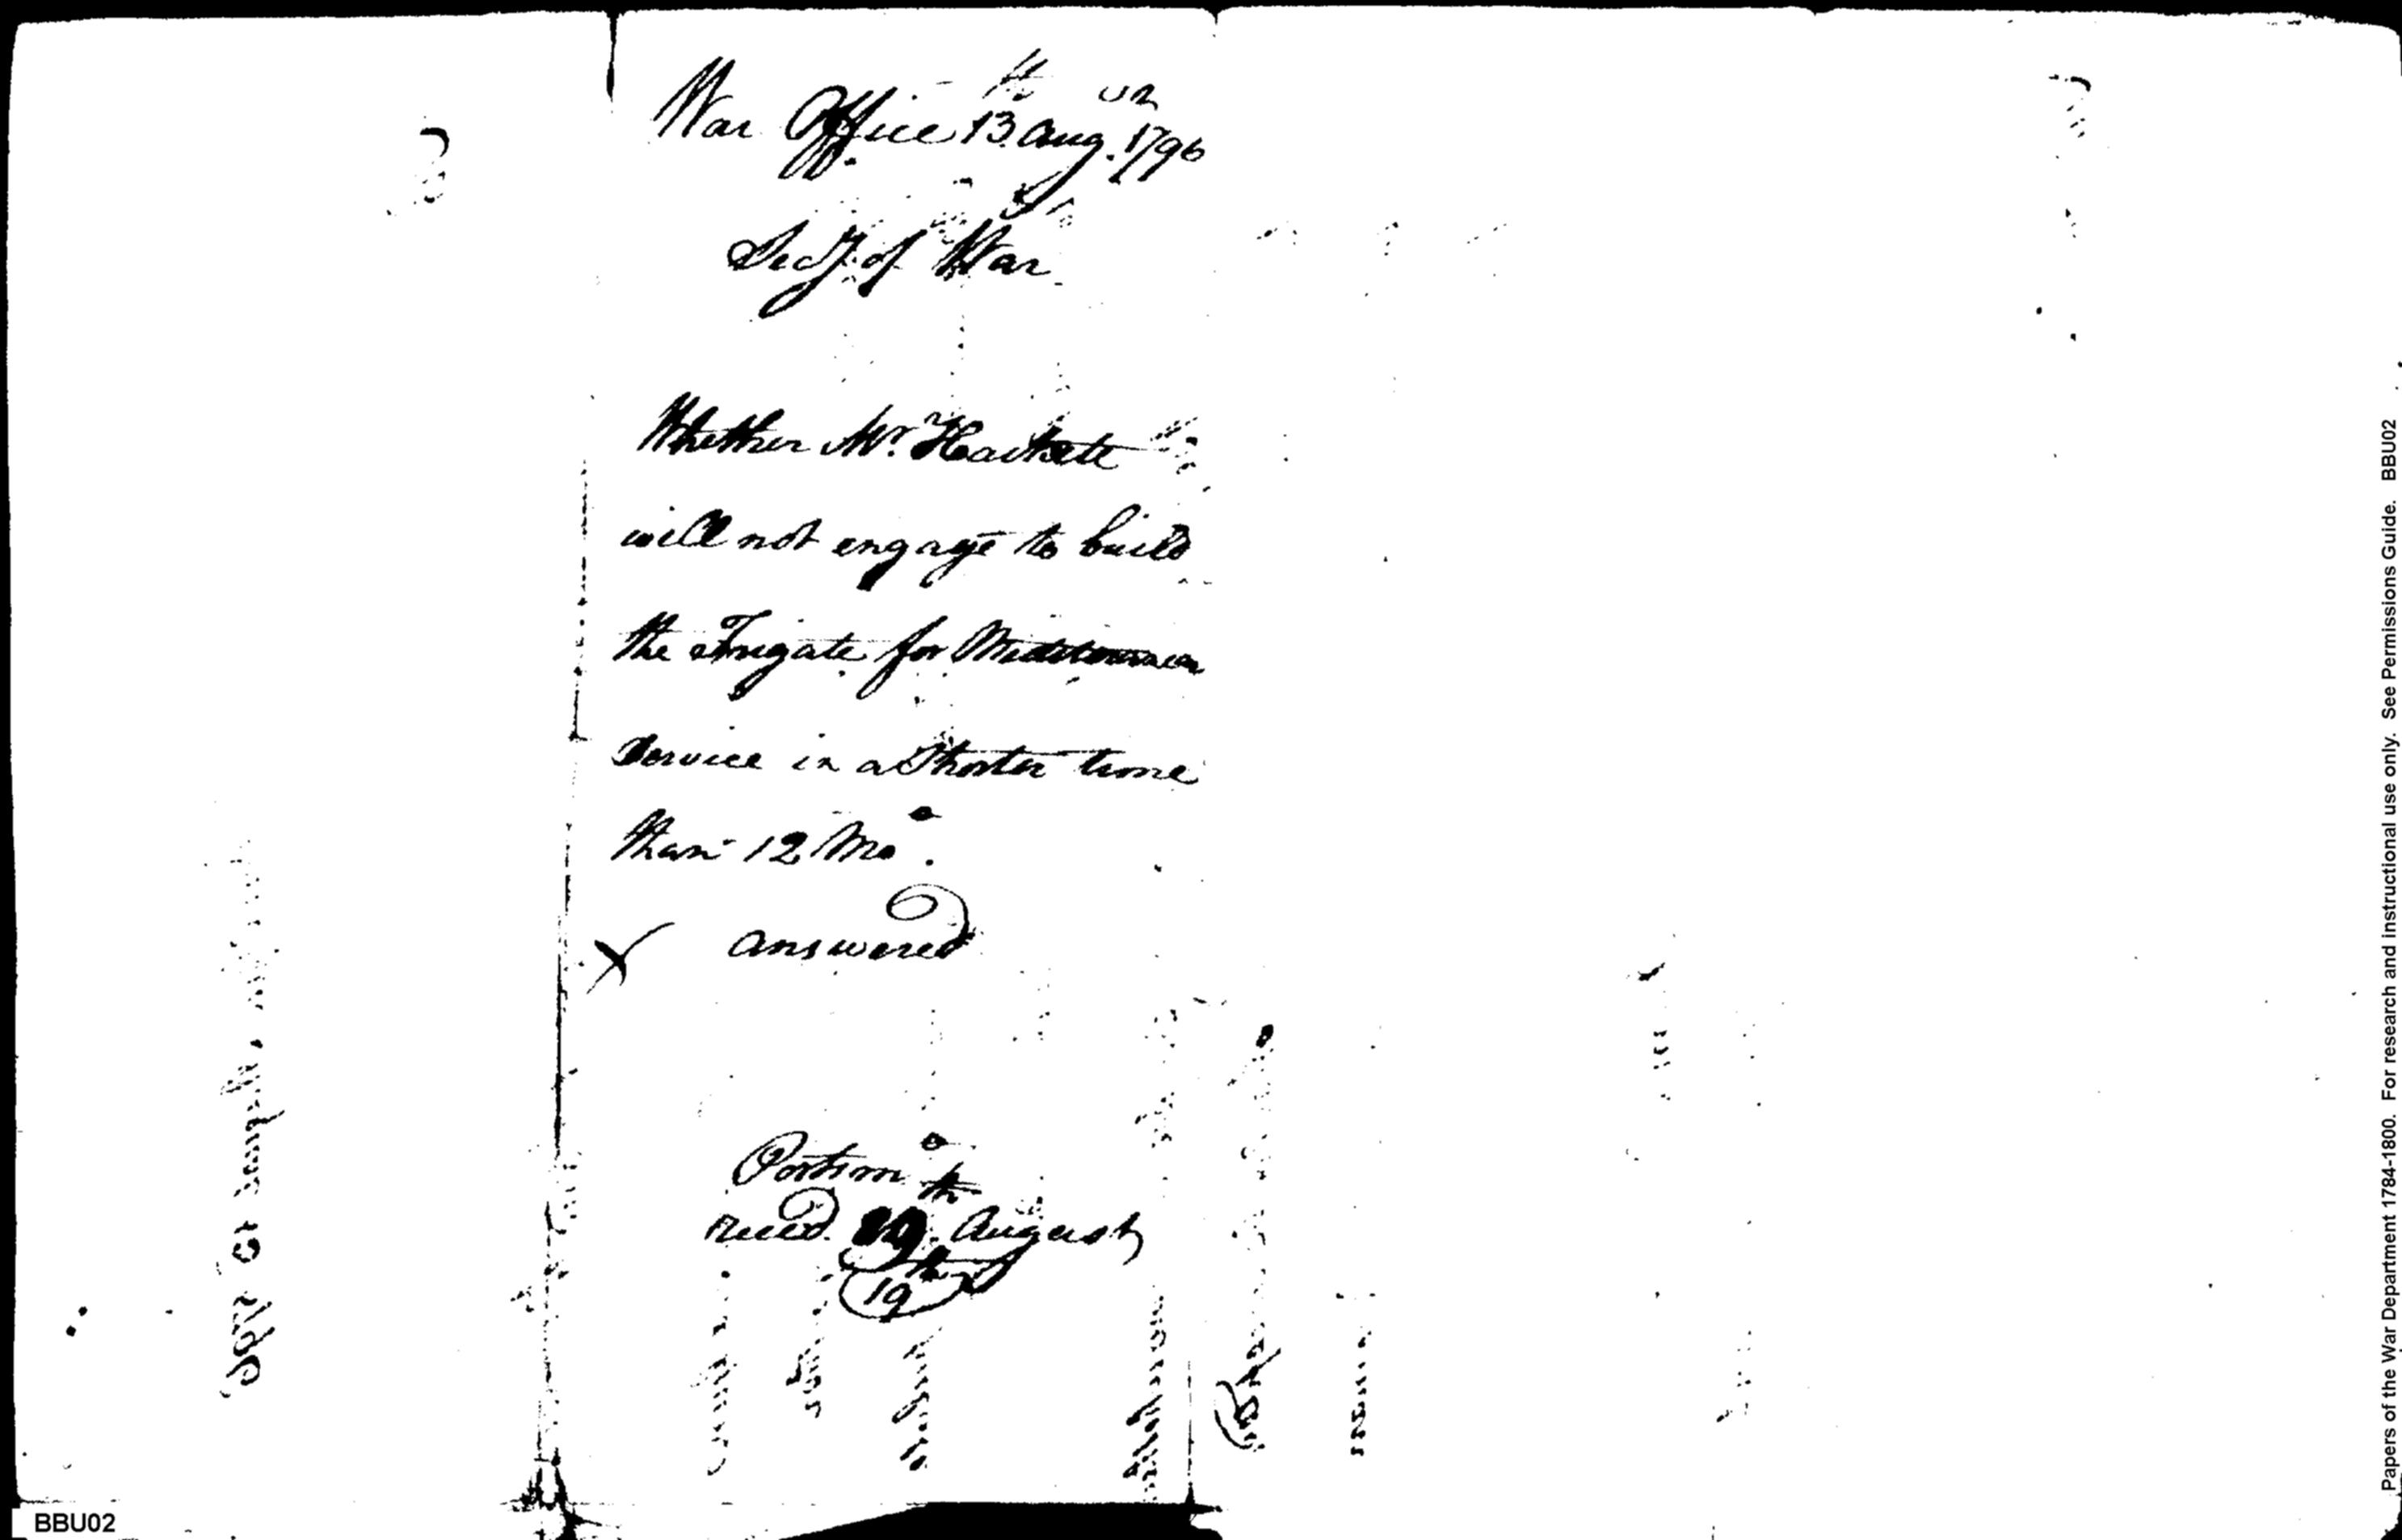 War Office 13 Aug. 1796
Secy. of War
Whether Mr. Hackett
will not engage to build
the Frigate for
Service in a Shorter time
than 12 Mo.
answered
Portsmo
recd. August
19
BBU02
Papers of the War Department 1784-1800. For research and instructional use only. See Permissions Guide. BBU02